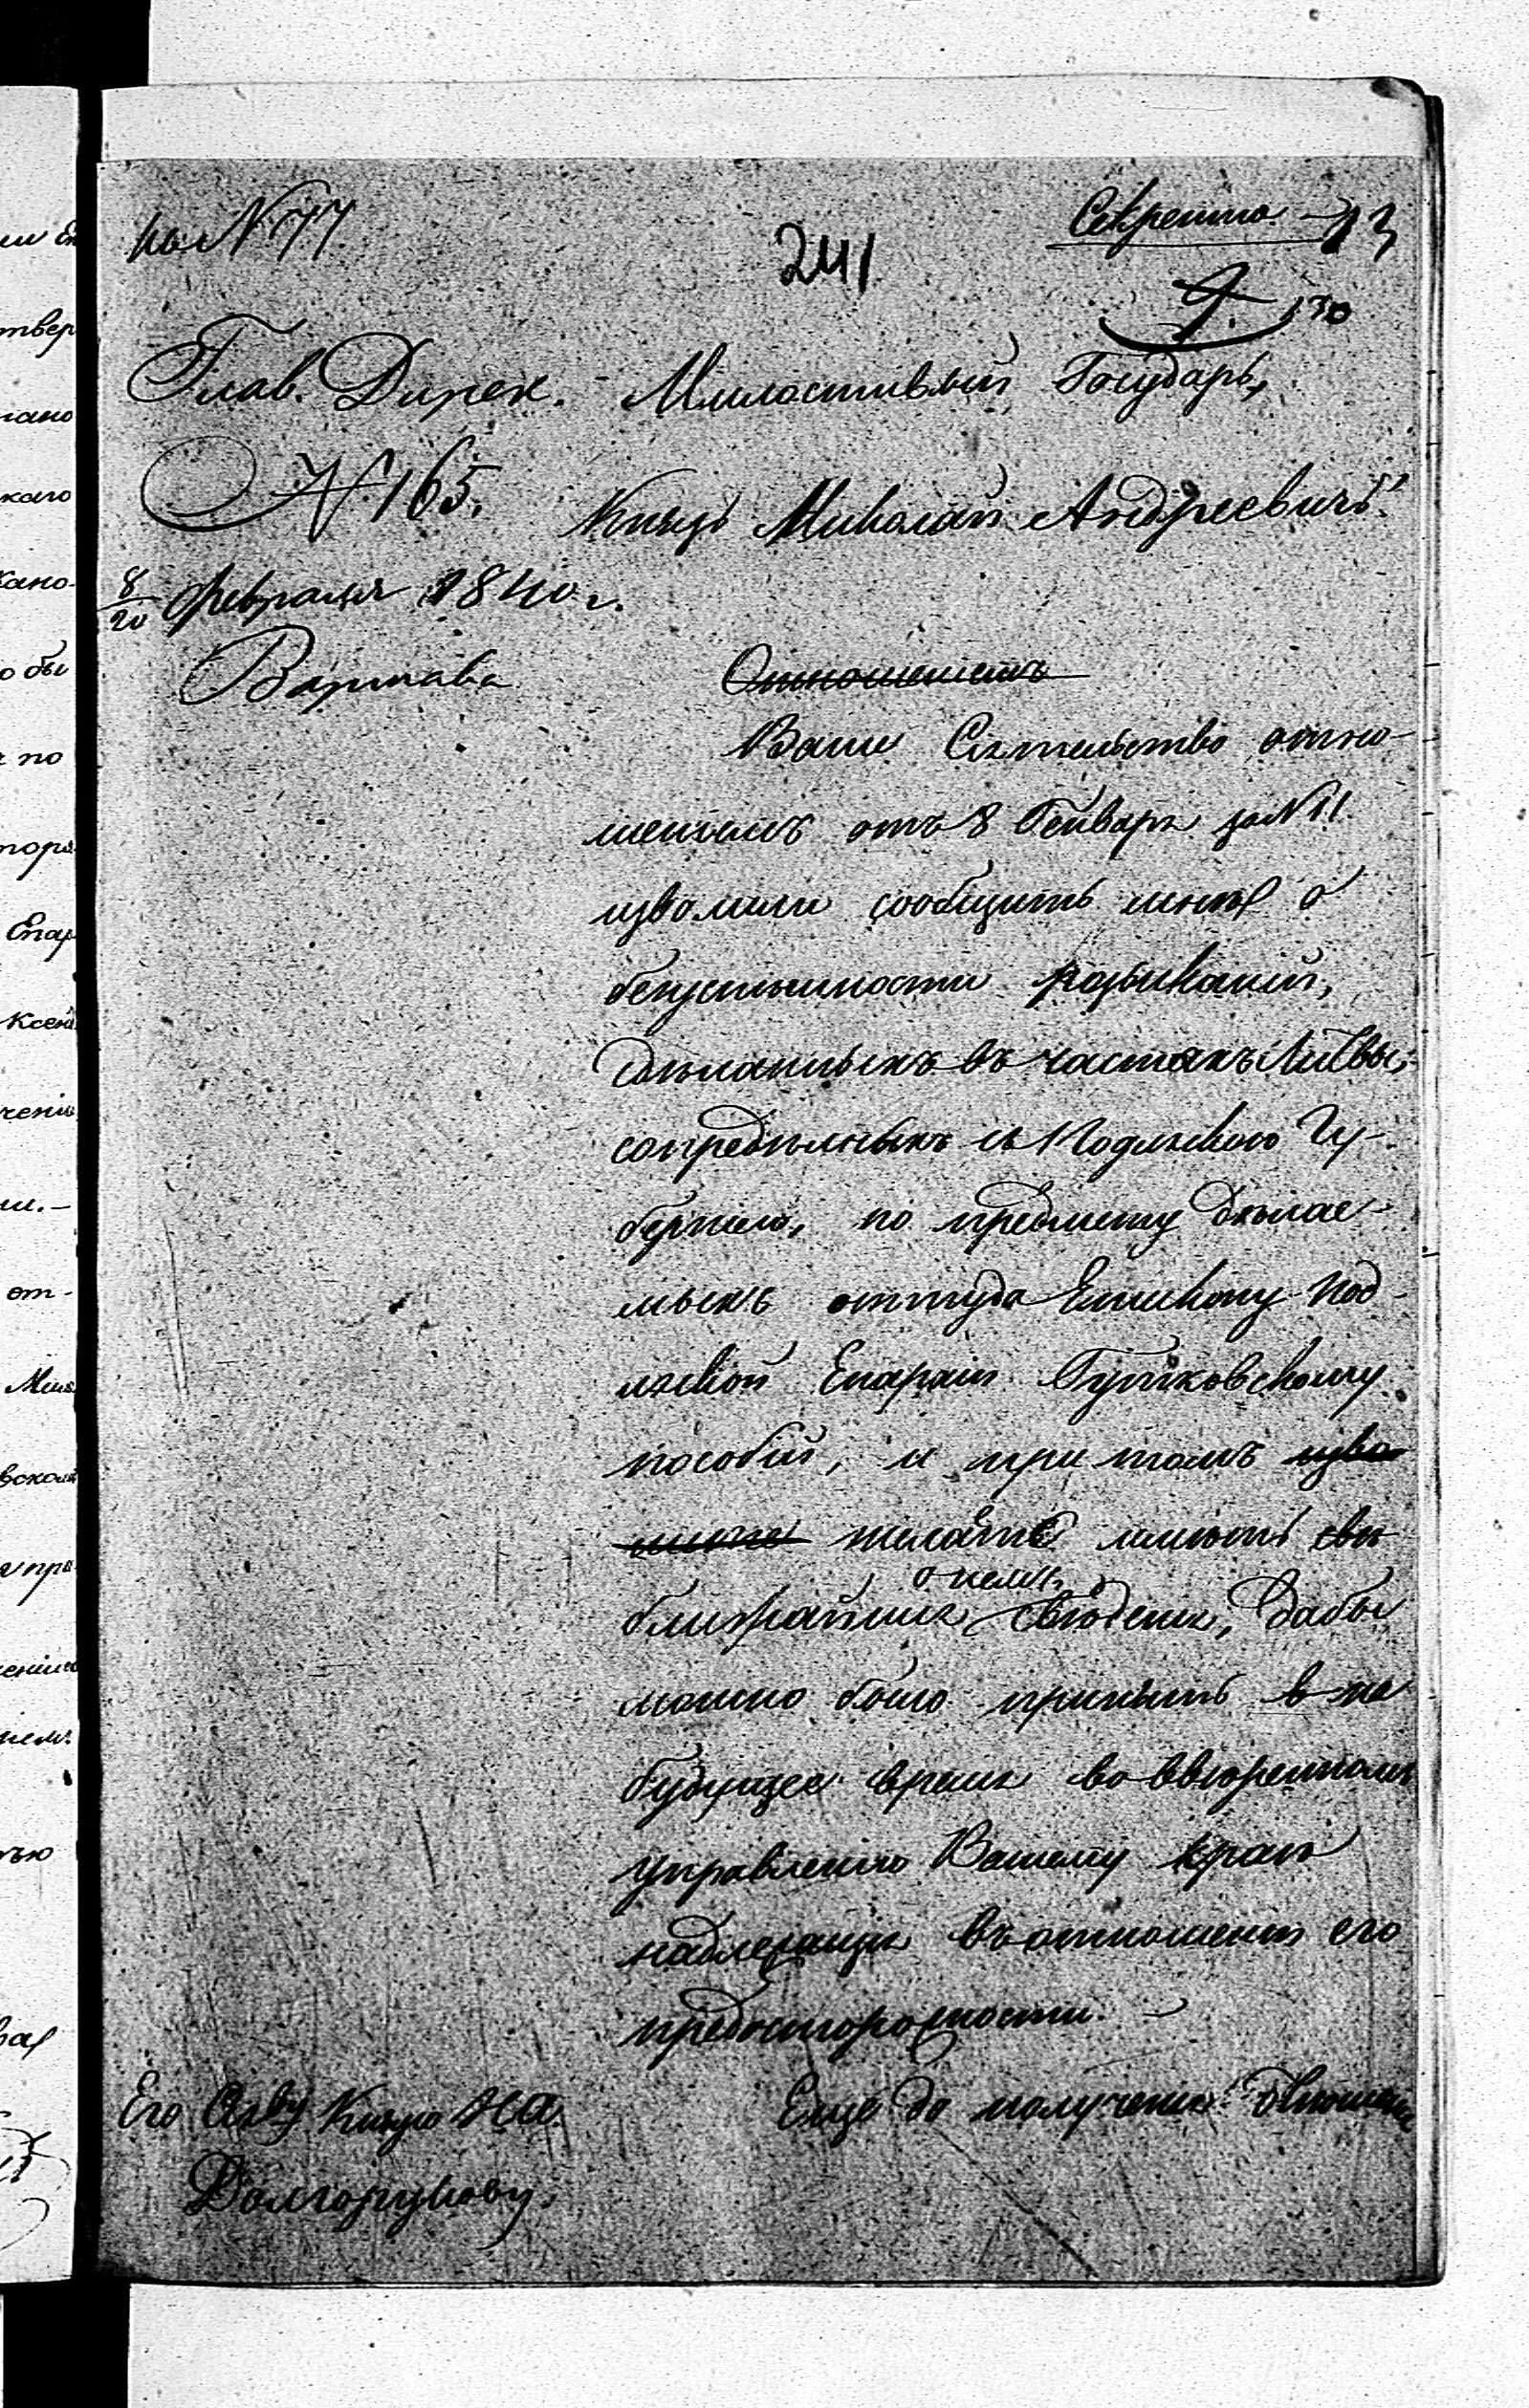 на N 77
241
Секретно
13
130
Глав. Дирек.
N. 165.
8/20 февраля 1840 г.
Варшава
Милостивый Государь,
Князь Николай Андреевичъ!
Отношеніемъ
Ваше Сіятельство отно-
шеніемъ отъ 8 Генваря за N 11
изволили сообщить мнѣ о
безуспѣшности розысканій,
дѣланныхъ въ частяхъ Литвы,
сопредѣльныхъ съ Подляскою Гу-
берніею, по предмету дѣлае-
мыхъ оттуда Епископу Под-
ляской Епархіи Гутковскому
пособій, и при томъ изво
лили желаете имѣть свѣ
о немъ
ближайшія свѣденія, дабы
можно было принять в на
будущее время во ввѣренномъ
управленію Вашему краѣ
надлежащія въ отношеніи его
предосторожности. —
Еще до полученія отношенія
Его Сія-ву Князю Н. А.
Долгорукову.